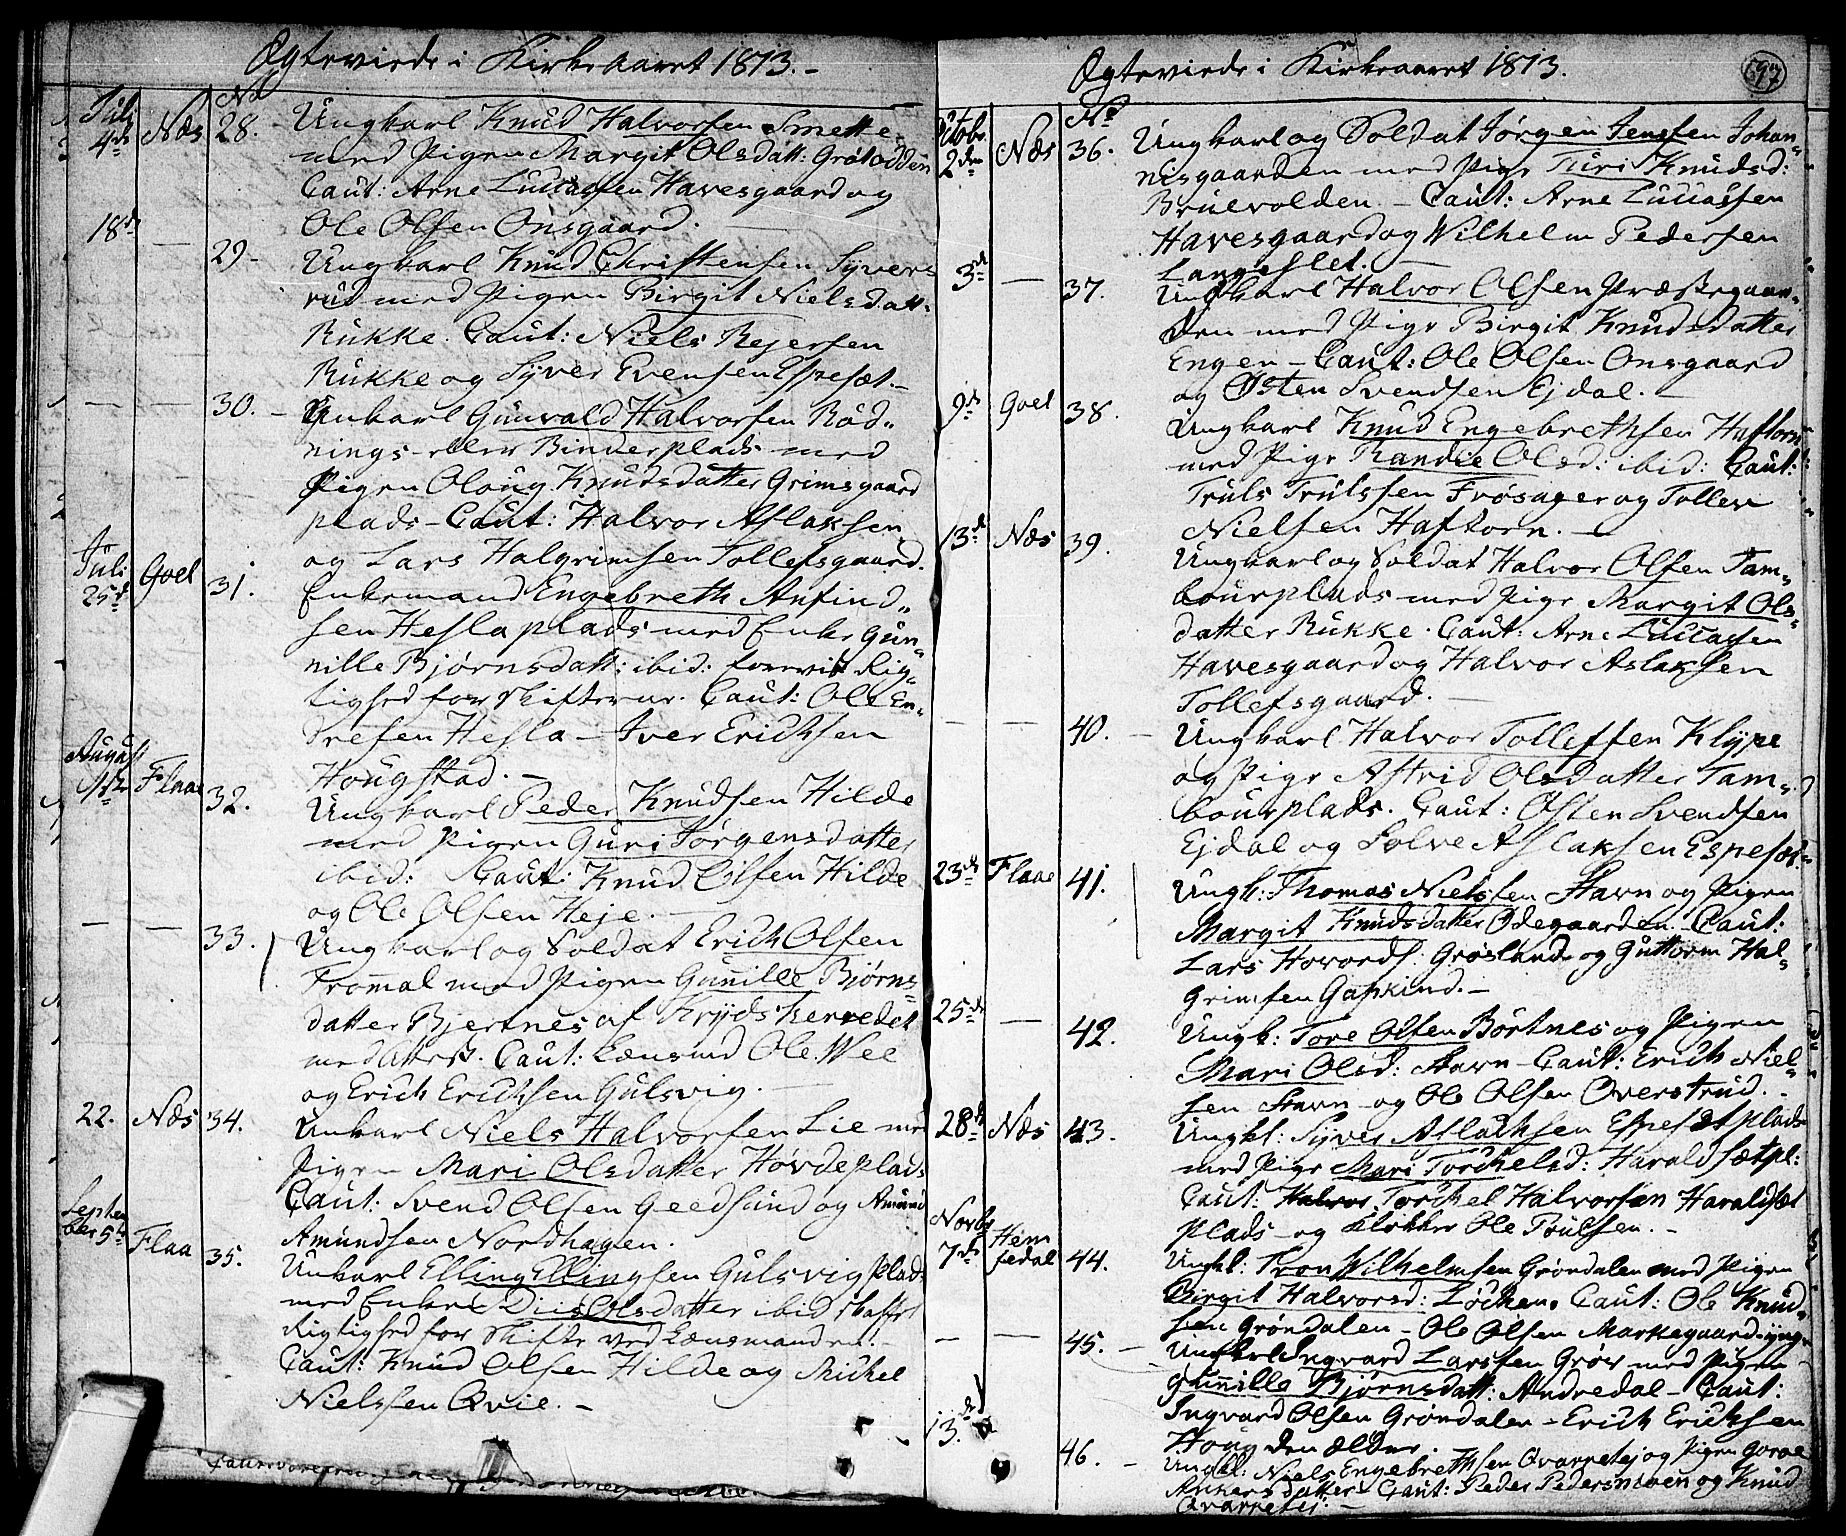 Ægteviede i Kirkeaaret 1813.-
No
Juli
4de Næs 28. Ungkarl Knud Halvorsen Smette
med Pigen Margit Olsdatt: Grøtodden
Caut: Arne Luccassen Havesgaard og
Ole Olsen Onsgaard.
18de — 29- Ungkarl Knud Christensen Syvers
rud med Pigen Birgit Nielsdatt.
Rukke. Caut: Niels Rejersen
Rukke og Syver Evensen Espesæt.-
— — 30. Unkarl Gunvald Halvorsen Rød„
nings- eller Binderplads med
Pigen Oloug Knudsdatter Grimsgaard
plads- Caut: Halvor Aslaksen
og Lars Halgrimsen Tollefsgaard.
Juli
25de Goel 31. Enkemand Engebreth Anfind„
sen Hesla plads med Enke Gun=
nille Bjørnsdatt: ibid: forevist Rig=
tighed for Skifterne. Caut: Ole En=
dresen Hesla — Iver Erichsen
Hougstad. -
August
1ste Flaae 32. Ungkarl Peder Knudsen Hilde
med Pigen Guri Jørgensdatter
ibid: Caut: Knud Olsen Hilde
og Ole Olsen Heje.
— — 33. Ungkarl og Soldat Erich Olsen
Trommal med Pigen Gunnille Bjørns=
datter Bjertnes af Krydsherredet
med Attest. Caut: Lænsmd Ole Wee
og Erich Erichsen Gulsvig.
22. Næs 34. Unkarl Niels Halvorsen Lie med
Pigen Mari Olsdatter Høvdeplads
Caut: Svend Olsen Geedsund og Amund
Amundsen Nordhagen.
Septem
ber 5te Flaa 35. Unkarl Elling Ellingsen Gulsvigplads
med Enke Diis Olsdatter ibid skaffet
Rigtighed for Skifte ved Lænsmanden.
Caut: Knud Olsen Hilde og Michel
Nielsen Qvie. -
Ægteviede i Kirkeaaret 1813.
697
No
Octobr.
2den Næs 36. Ungkarl og Soldat Jørgen Jensen Johan=
nisgaarden med Pige Turi Knudsd:
Bruevolden. - Caut: Arne Luccassen
Havesgaard og Wilhelm Pedersen
Langeslet.
3de — 37. Ungkarl Halvor Olsen Præstegaar=
den med Pige Birgit Knudsdatter
Engen - Caut: Ole Olsen Onsgaard
og Østen Svendsen Ejdal. -
9de Goel 38. Ungkarl Knud Engebrethsen Haftorn
med Pige Randie Olsd: ibid: Caut:
Truls Trulssen Frøsager og Tollev
Nielsen Haftorn. -
13de Næs 39. Ungkarl og Soldat Halvor Olsen Tam=
bourplads med Pige Margit Ols=
datter Rukke. Caut: Arne Luccassen
Havesgaard og Halvor Aslaksen
Tollefsgaard.
— — 40. - Ungkarl Halvor Tollefsen Klype
og Pige Astrid Olsdatter Tam=
bourplads. Caut: Østen Svendsen
Ejdal og Solve Aslaksen Espesæt
23de Flaae 41. Ungk: Thomas Nielsen Stavn og Pigen
Margit Knudsdatter Ødegaarden. Caut:
Lars Hovords: Grøsland og Guttorm Hal=
grimsen Gapkind. -
25de — 42. Ungk: Tore Olsen Børtnes og Pigen
Mari Olsd: Stavn - Caut: Erich Niel=
sen Stavn og Ole Olsen Overstrud.
28de Næs 43. Ungkl: Syver Aslachsen Espesætplads
med Pige Mari Torchelsd: Haraldsætpl:
Caut: Torchel Halvorsen Haraldsæt
plads - og Klokker Ole Poulsen. -
Novbr
7de Hem
sedal 44. Ungkl: Tron Wilhelmsen Grøndalen med Pigen
Birgit Halvorsd: Løchen. Caut: Ole Knud=
sen Grøndalen - Ole Olsen Markegaard yng=
— — 45. - Ungkarl Ingvard Larssen Grøv med Pigen
Gunnille Bjørnsdatt: Andredal - Caut:
Ingvard Olsen Grøndalen - Erich Erichsen
Houg den ældre.
13.de 46. - Ungkl: Niels Engebrethsen Qvarretej og Pigen Goroe
Andersdatter Caut: Peder Pedersmoen og Knud
Qvarretej. -